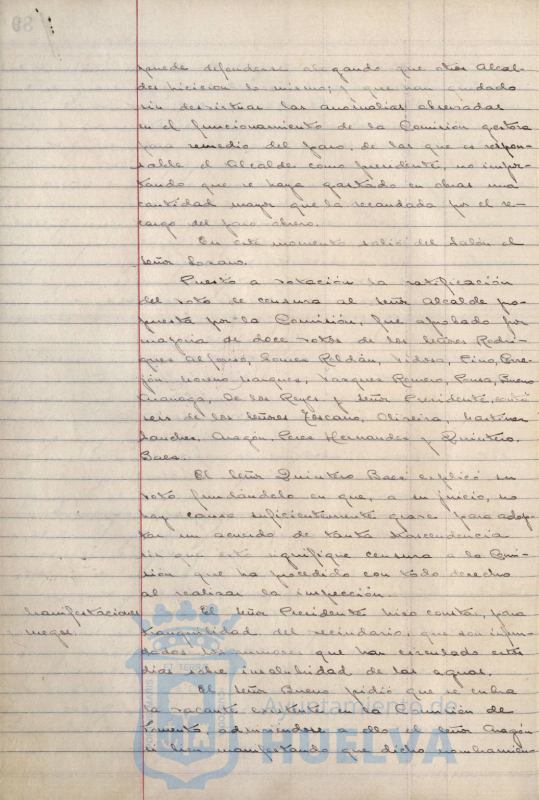 puede defenderse alegando que otros Alcal-
des hicieron lo mismo; y que han quedado
sin desvirtuar las anomalías observadas
en el funcionamiento de la Comisión gestora
para remedio del paro, de las que es respon-
sable el Alcalde como presidente, no impor-
tando que se haya gastado en obras una
cantidad mayor que la recaudada por el re-
cargo del paro obrero.
En este momento salió del Salón el
señor Lozano.
Puesto a votación la ratificación
del voto de censura al señor Alcalde pro-
puesta por la Comisión, fue aprobado por
mayoría de doce votos de los señores Rodrí-
guez Alfonso, Gómez Roldán, Pino,
Moreno Márquez, Vázquez Romero, Ponsa, Bueno
De los Reyes y señor Presidente, contra
seis de los señores Toscano, Oliveira, Martínez
Sánchez, Aragón, Pérez Hernández y Quintero
Baez.
El señor Quintero Baez explicó su
voto fundándolo en que, a su juicio, no
hay causa suficientemente grave para adop-
tar un acuerdo de tanta trascendencia
sin que esto signifique censura a la Comi-
sión que ha procedido con todo derecho
al realizar la inspección.
Manifestaciones El señor Presidente hizo constar, para
tranquilidad del vecindario, que son infun-
dados los rumores que han circulado estos
días sobre insalubridad de las aguas.
El señor Bueno pidió que se cubra
la vacante existente en la Comisión de
Fomento, adhiriéndose a ello el señor Aragón
si bien manifestando que dicho nombramien-
Ayuntamiento de
HUELVA